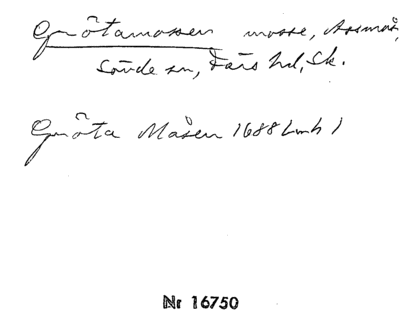 Grötamossen mosse, Assmås,
Sövde sn, Färs hd, Sk.
Gröta Måsen 1688 Lmh 1
Nr 16750